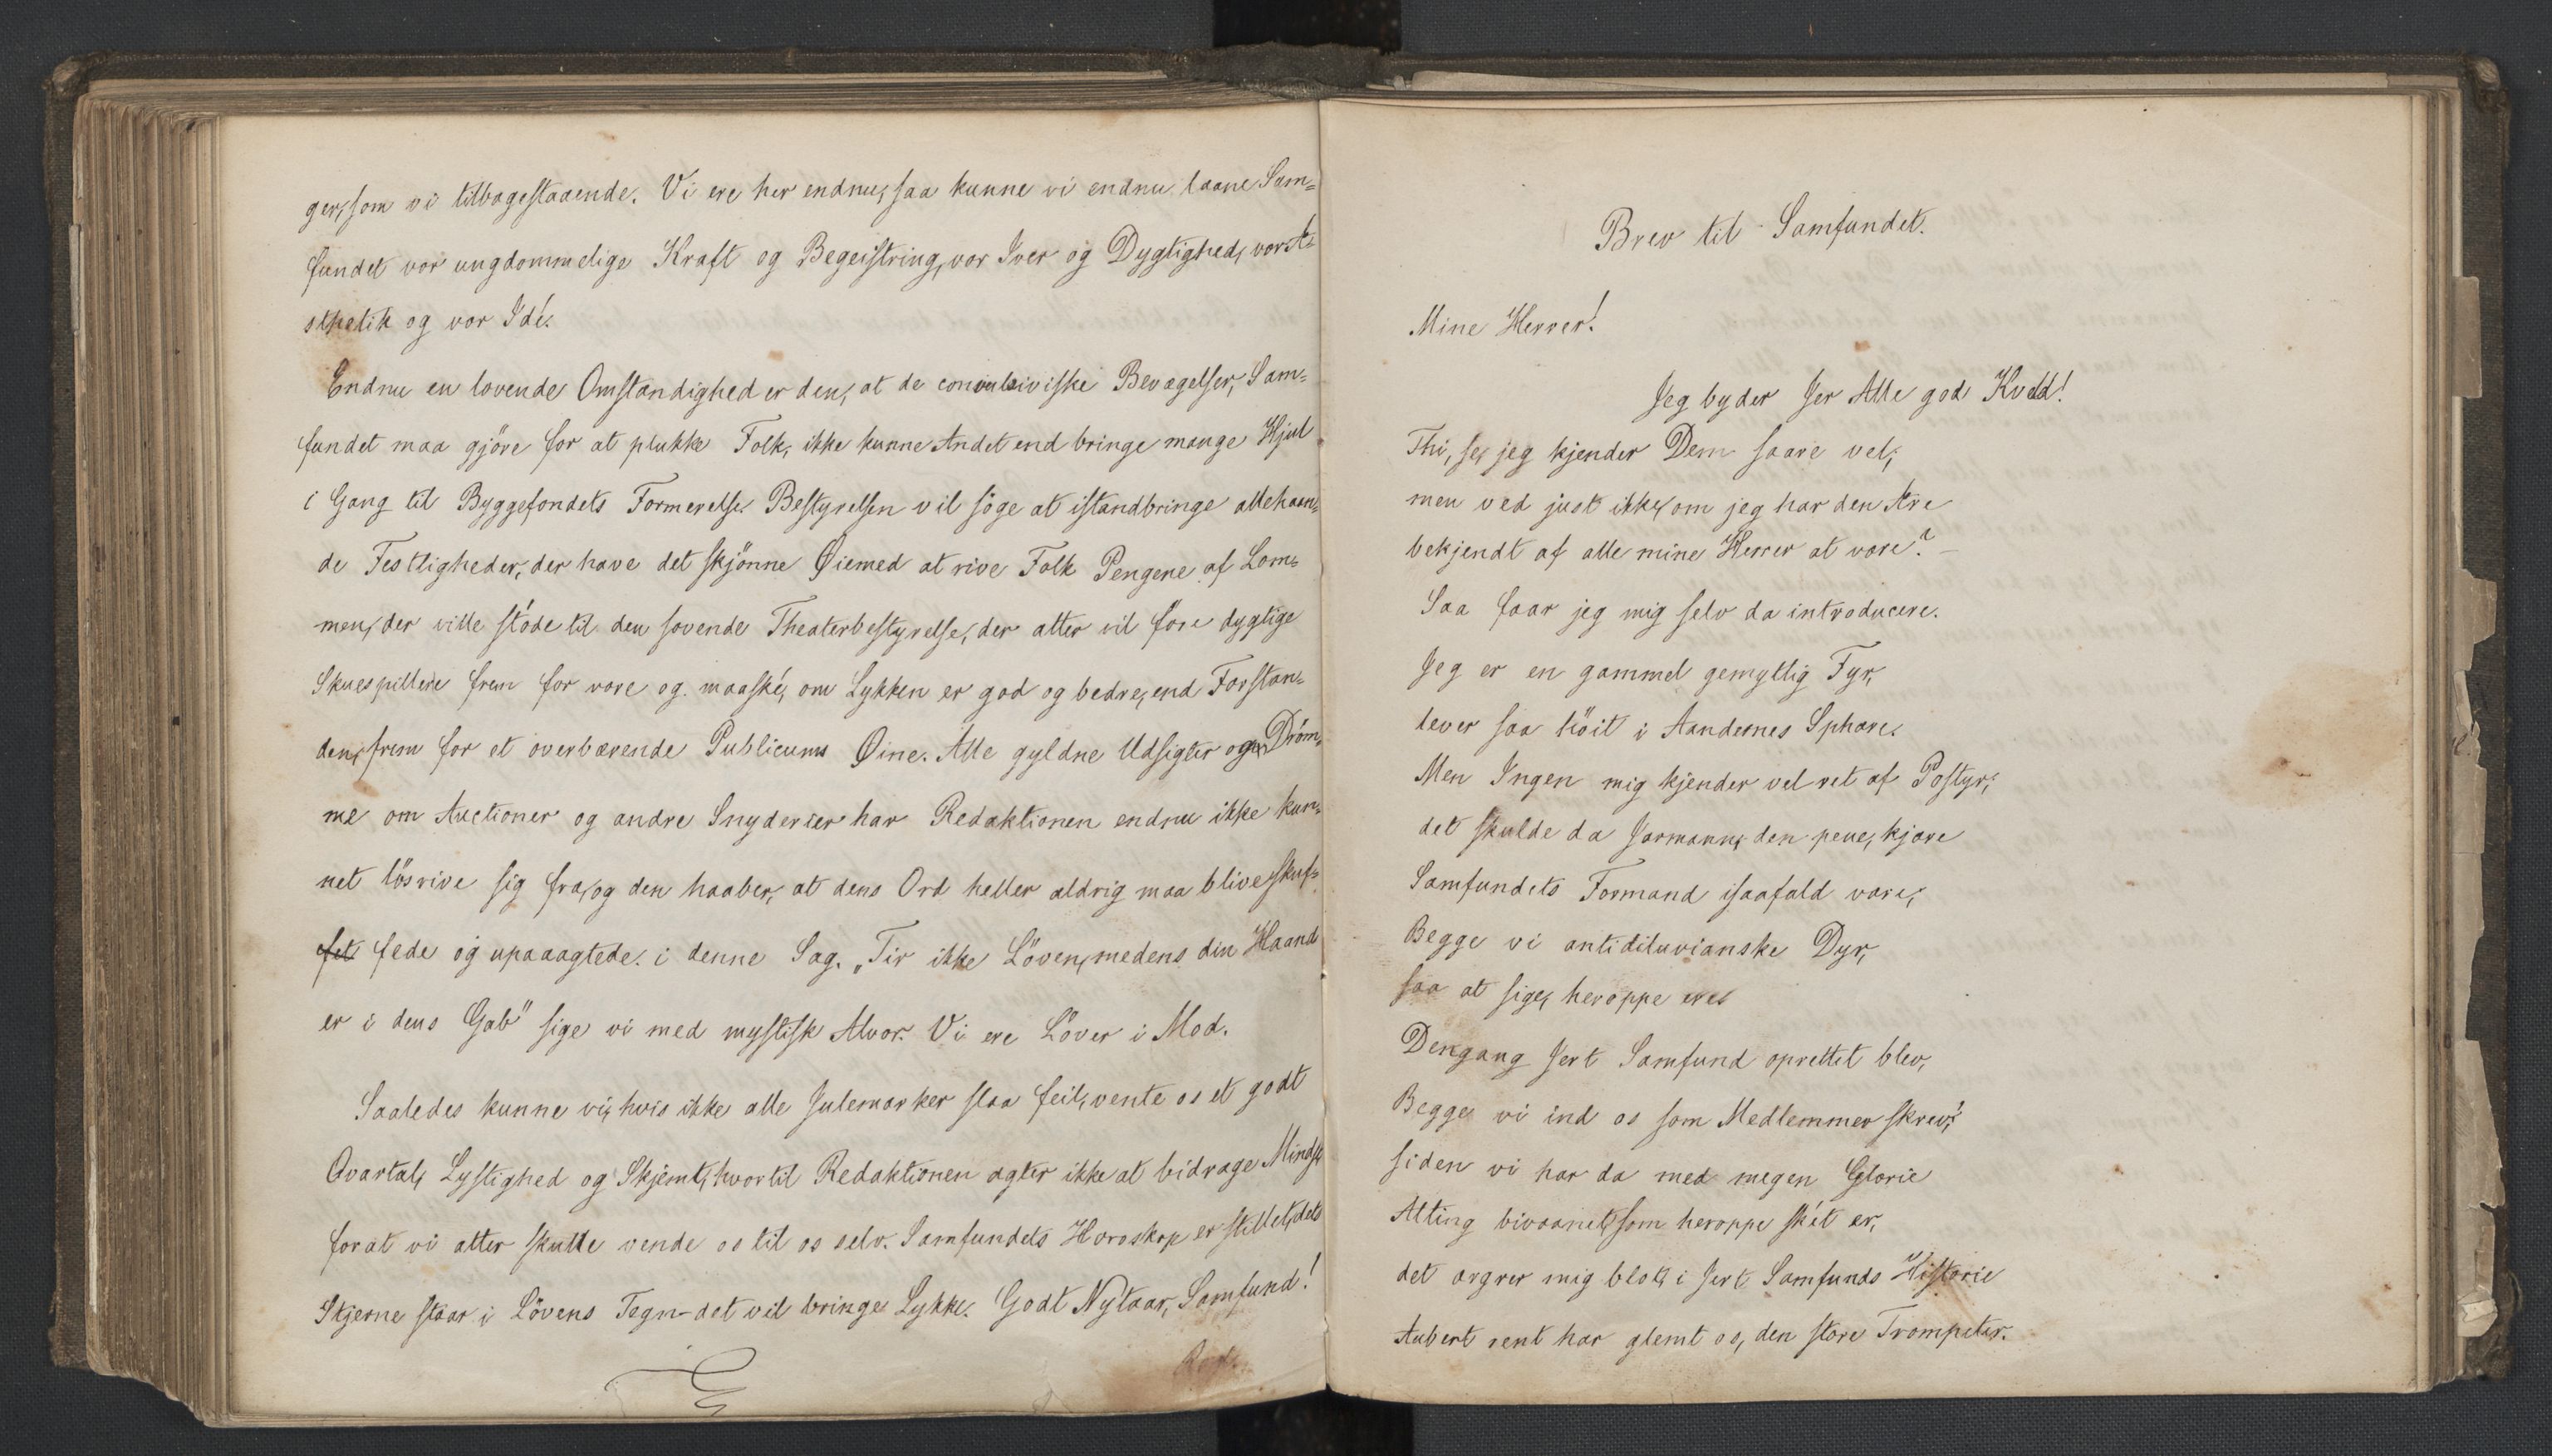 ger, som vi tilbagestaaende. Vi ere her endnu, saa kunne vi endnu laane Sam-
fundet vor ungdommelige Kraft og Begeistring, vor Iver og Dygtighed, vor Æ-
sthetik og vor Idé.
Endnu en lovende Omstændighed er den, at de convulsiviske Bevægelser, Sam-
fundet maa gjöre for at plukke Folk, ikke kunne Andet end bringe mange Hjul
i Gang til Byggefondets Formerelse. Bestyrelsen vil söge at istandbringe allehaan-
de Festligheder, der have det skjönne Øiemed at rive Folk Pengene af Lom-
men, der ville stöde til den sovende Theaterbestyrelse, der atter vil före dygtige
Skuespillere frem for vore og maaské, om Lykken er god og bedre, end Forstan-
den, frem for et overbærende Publicums Øine. Alle gyldne Udsigter og Dröm-
me om Auctioner og andre Snyderier har Redaktionen endnu ikke kun-
net lösrive sig fra, og den haaber, at dens Ord heller aldrig maa blive skuf-
fet fede og upaaagtede i denne Sag. „Tir ikke Löven, medens din Haand
er i dens Gab" sige vi med mystisk Alvor. Vi ere Löver i Mod.
Saaledes kunne vi, hvis ikke alle Julemærker slaa feil, vente os et godt
Qvartal, Lystighed og Skjemt, hvortil Redaktionen agter ikke at bidrage Mindst
forat vi atter skulle vende os til os selv. Samfundets Horoskop er stillet, dets
Stjerne staar i Lövens Tegn - det vil bringe Lykke. Godt Nytaar, Samfund!
Red.
Brev til Samfundet.
Mine Herrer!
Jeg byder Jer Alle god Kveld!
Thi, se, jeg kjender Dem saare vel;
men ved just ikke, om jeg har den Ære
bekjendt af alle mine Herrer at være? —
Saa faar jeg mig selv da introducere.
Jeg er en gammel gemytlig Fyr,
lever saa höit i Aandernes Sphære.
Men Ingen mig kjender vel ret af Postyr;
det skulde da Jarmann, den pene, kjære
Samfundets Formand isaafald være;
Begge vi antidiluvianske Dyr,
saa at sige, heroppe ere
Dengang Jert Samfund oprettet blev,
Begge vi ind os som Medlemmer skrev;
siden vi har da med megen Glorie
Alting bivaanet, som heroppe skét er,
det ærgrer mig blot, i Jert Samfunds Historie
Aubert rent har glemt os, den store Trompeter.